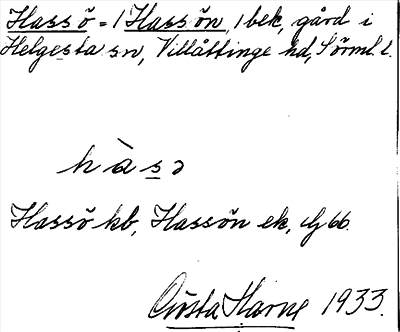 Hassö = 1 Hassön, 1 bek, gård i
Helgesta sn, Villåttinge hd, Sörml. l.
hàsə
Hassö kb, Hassön ek, Gg 66.
Gösta Harne 1933.